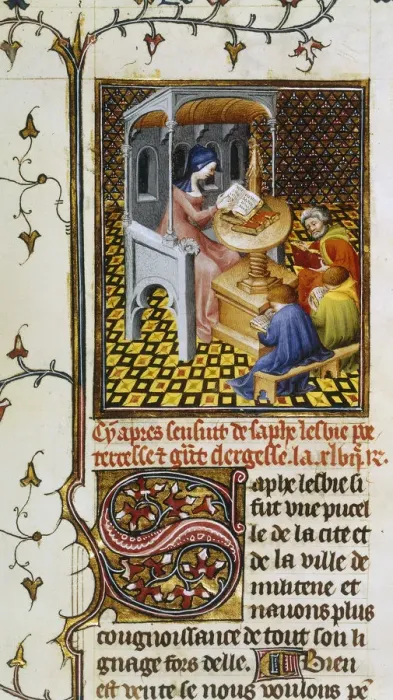 Cy apres sensuit de saphe lesbie poe
teresse ⁊ clergesse. la
Saphe lesbie si
fut vne pucel
le de la cite et
de la ville de
militene et
nauons plus
congnoissance de tout son li
gnage fors delle. Bien
est verite se nous voulons pē